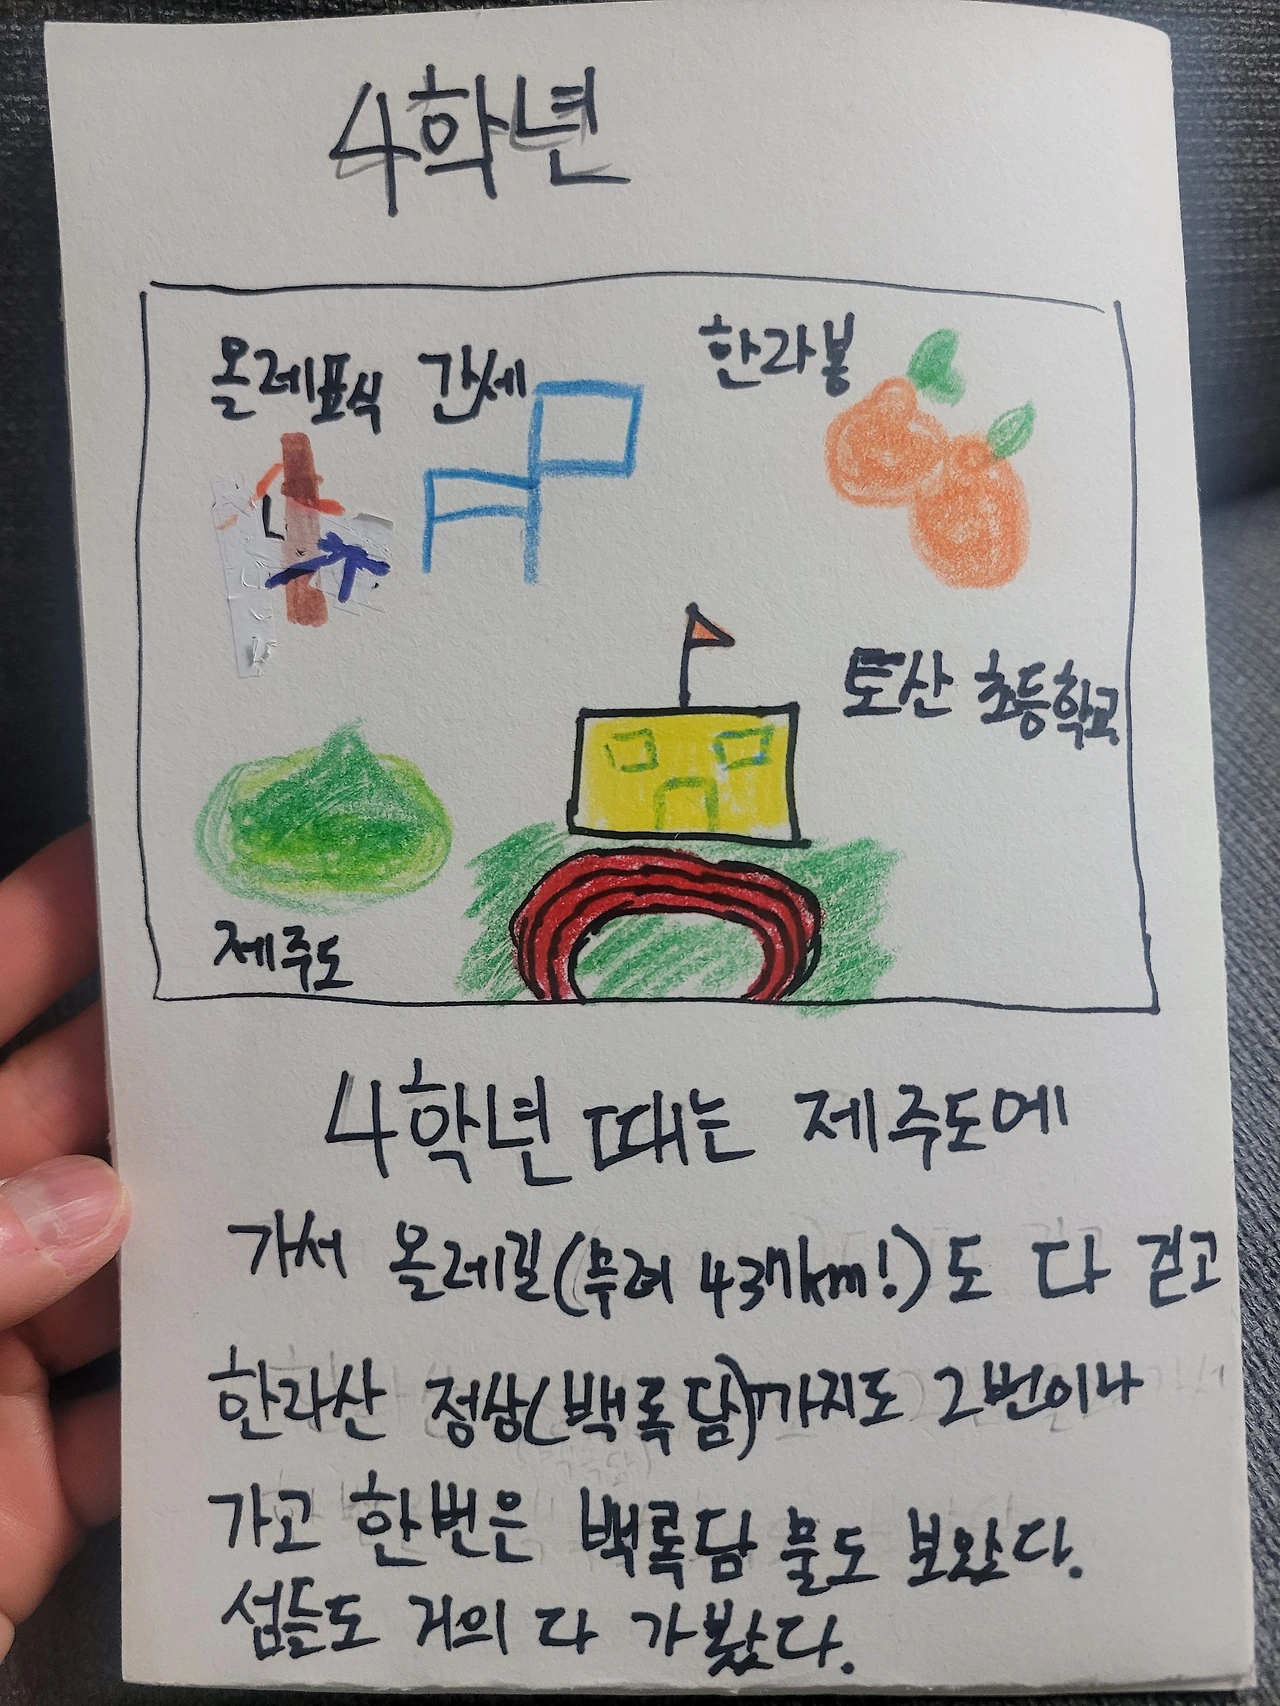 4학년
올레표식 간세
한라봉
토산 초등학교
제주도
4학년 때는 제주도에
가서 올레길(무려 437km!)도 다 걷고
한라산 정상(백록담)까지도 2번이나
가고 한번은 백록담 물도 보았다.
섬들도 거의 다 가봤다.